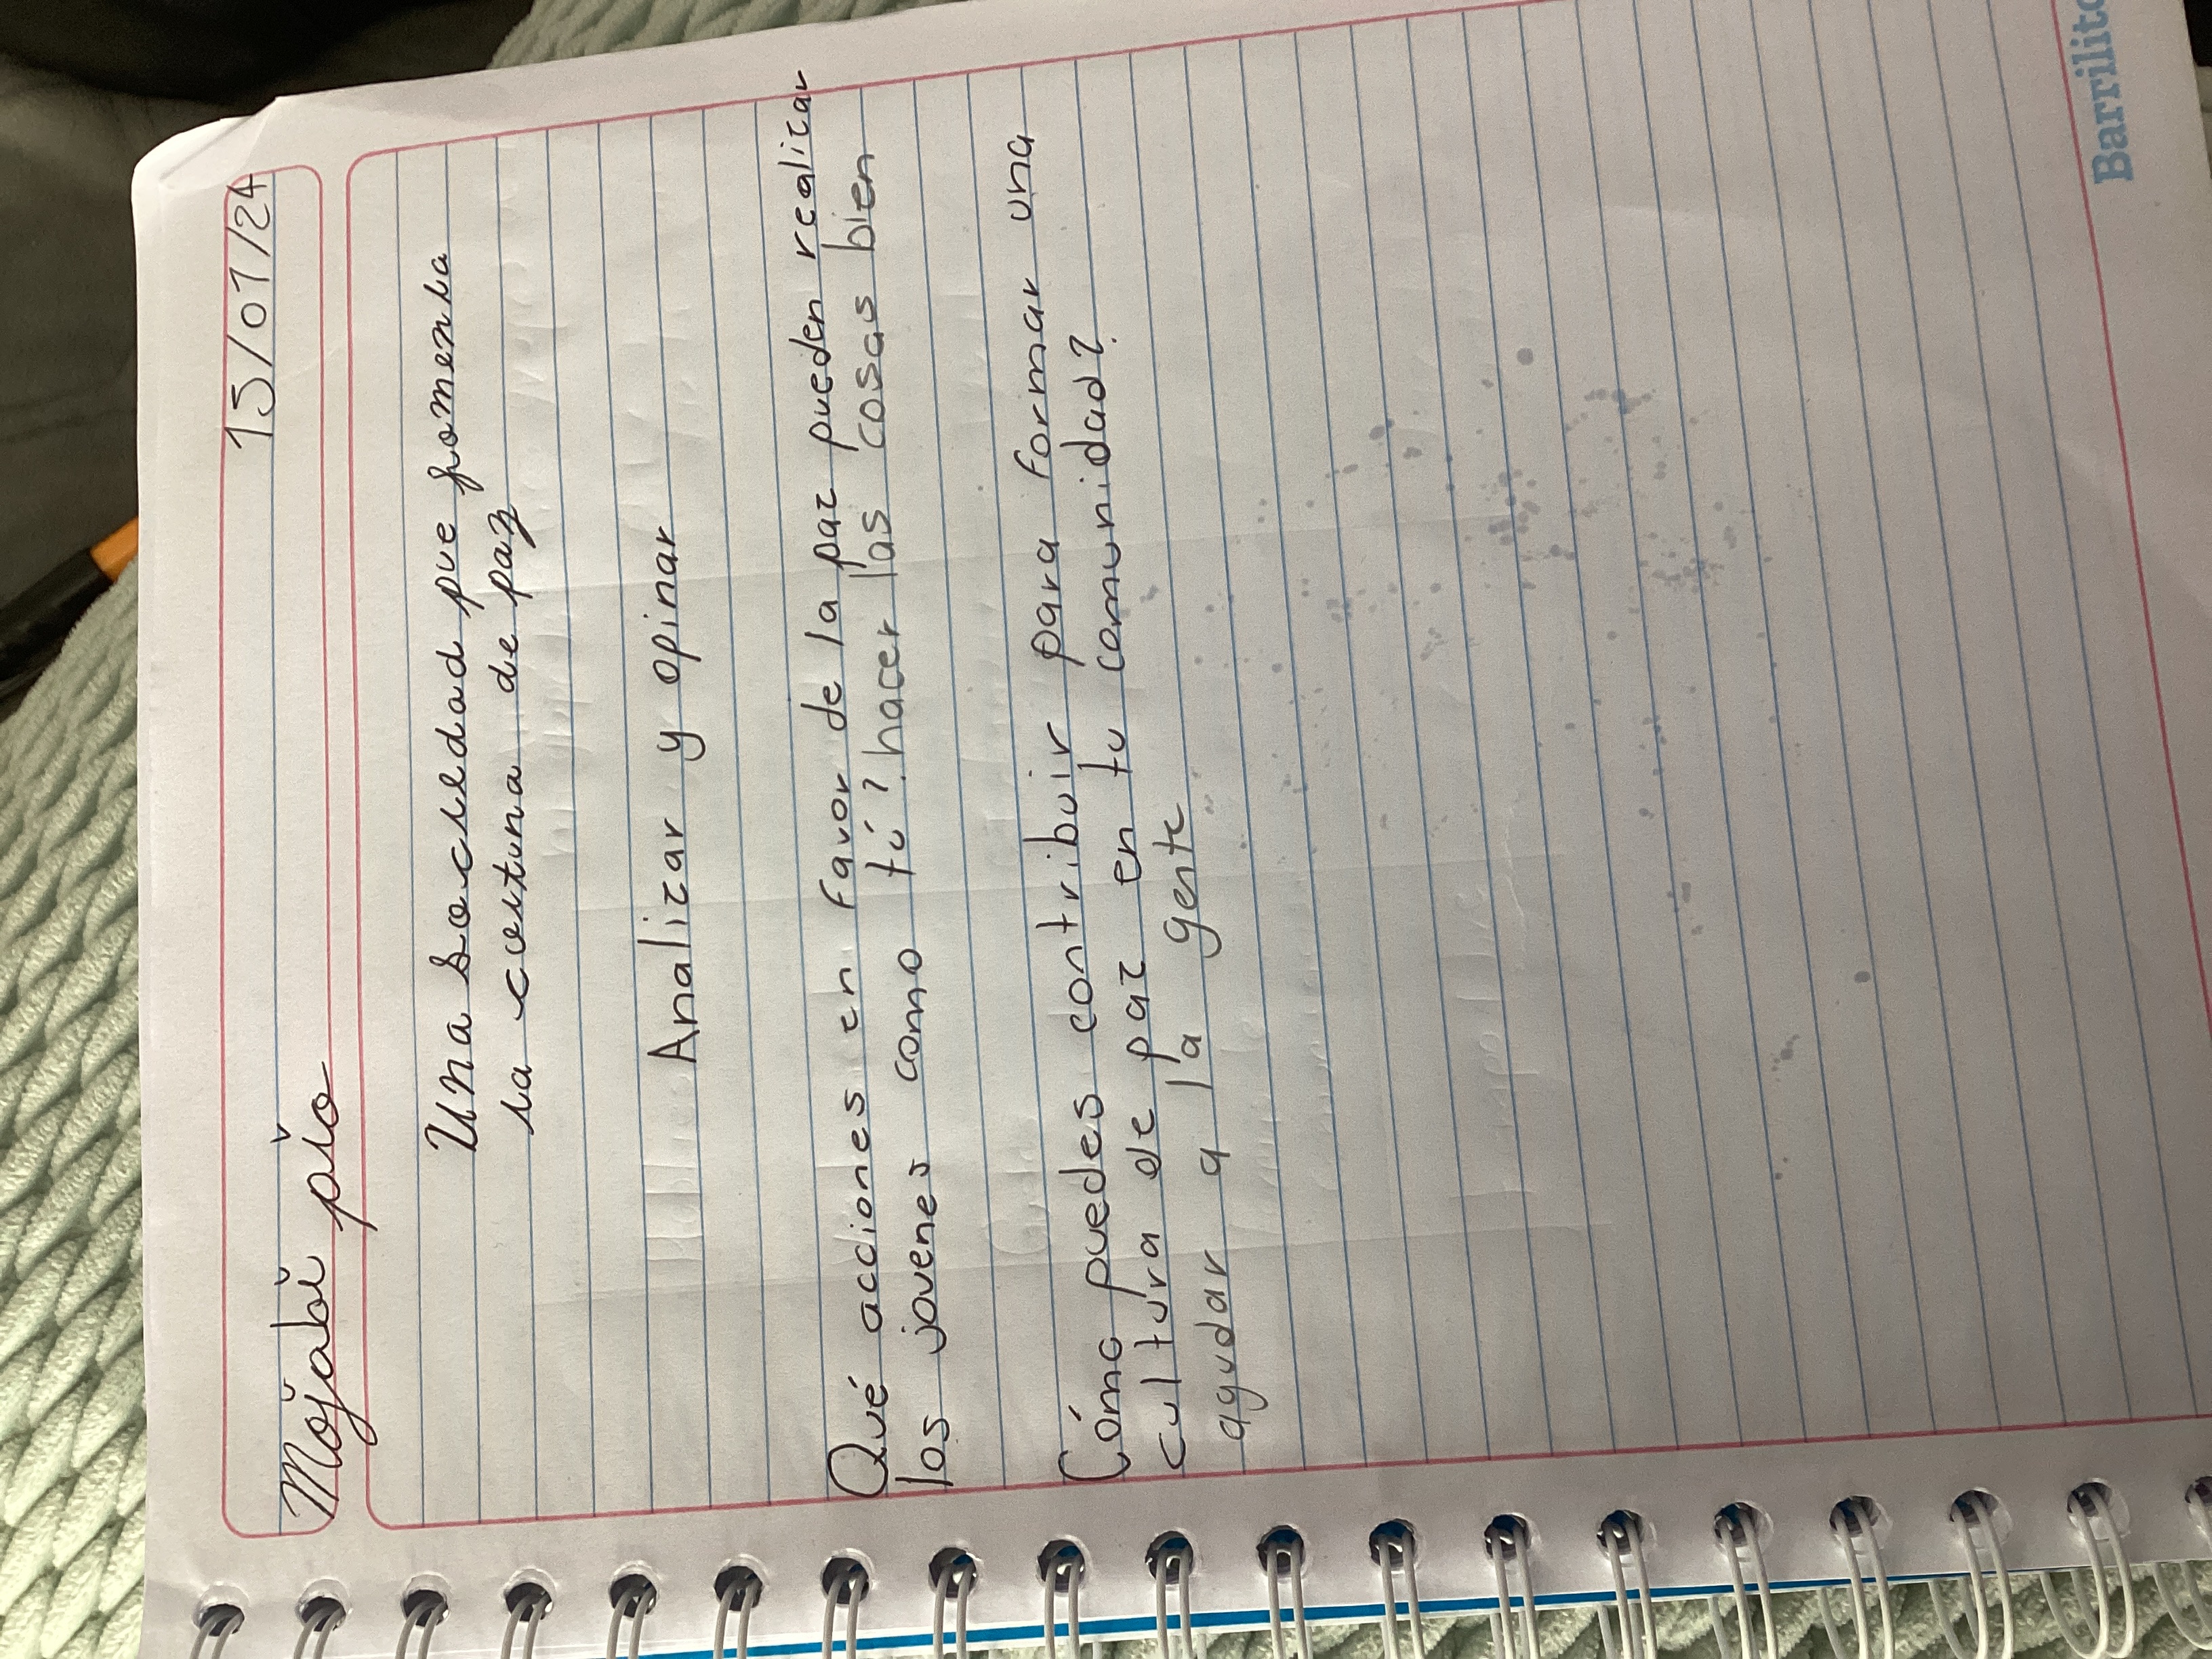 15/01/24
Mojabi pio
Una sociedad que fomenta
la cultura de paz
Analizar y opinar
Qué acciones en favor de la paz pueden realizar
los jovenes como tú? hacer las cosas bien
Cómo puedes contribuir para formar una
cultura de paz en tu comunidad?
ayudar a la gente
Barrilito